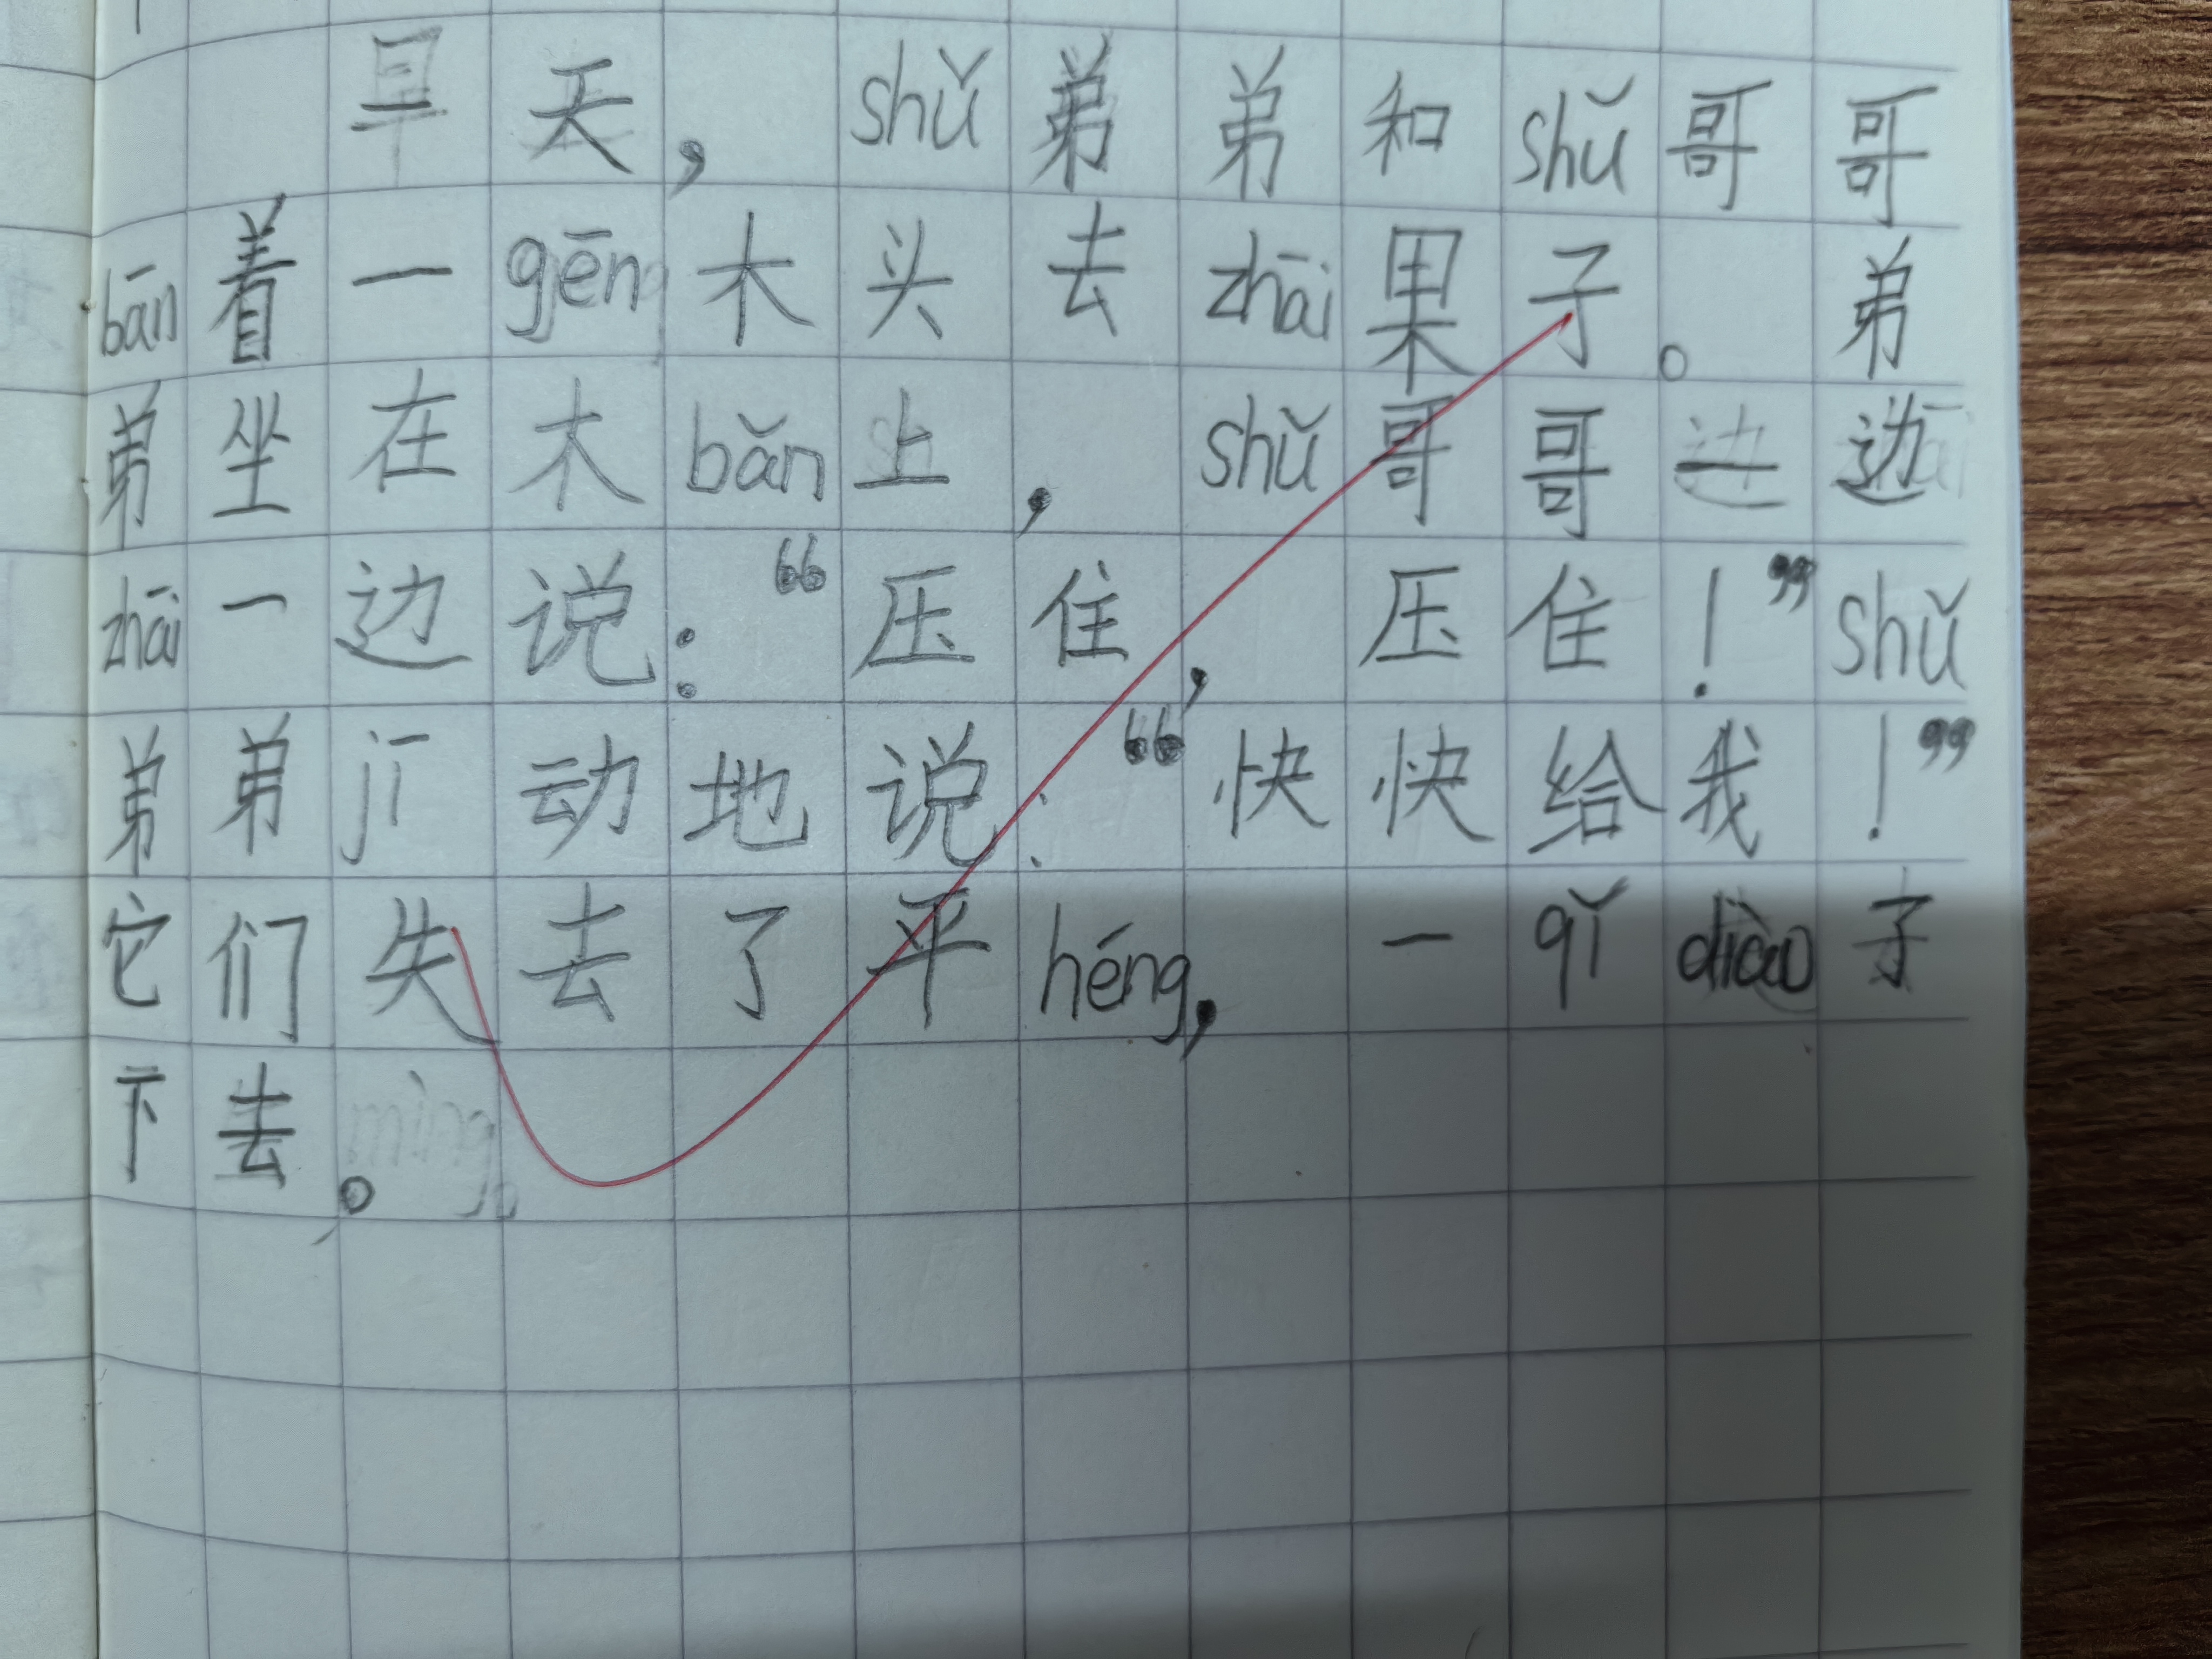 一天，shǔ弟弟和shǔ哥哥
bān着一gēn木头去zhāi果子。弟
弟坐在木bǎn上，shǔ哥哥一边
zhāi一边说：“压住，压住！”shǔ
弟弟jī动地说：“快快给我！”
它们失去了平héng，一qǐdiào子
下去。